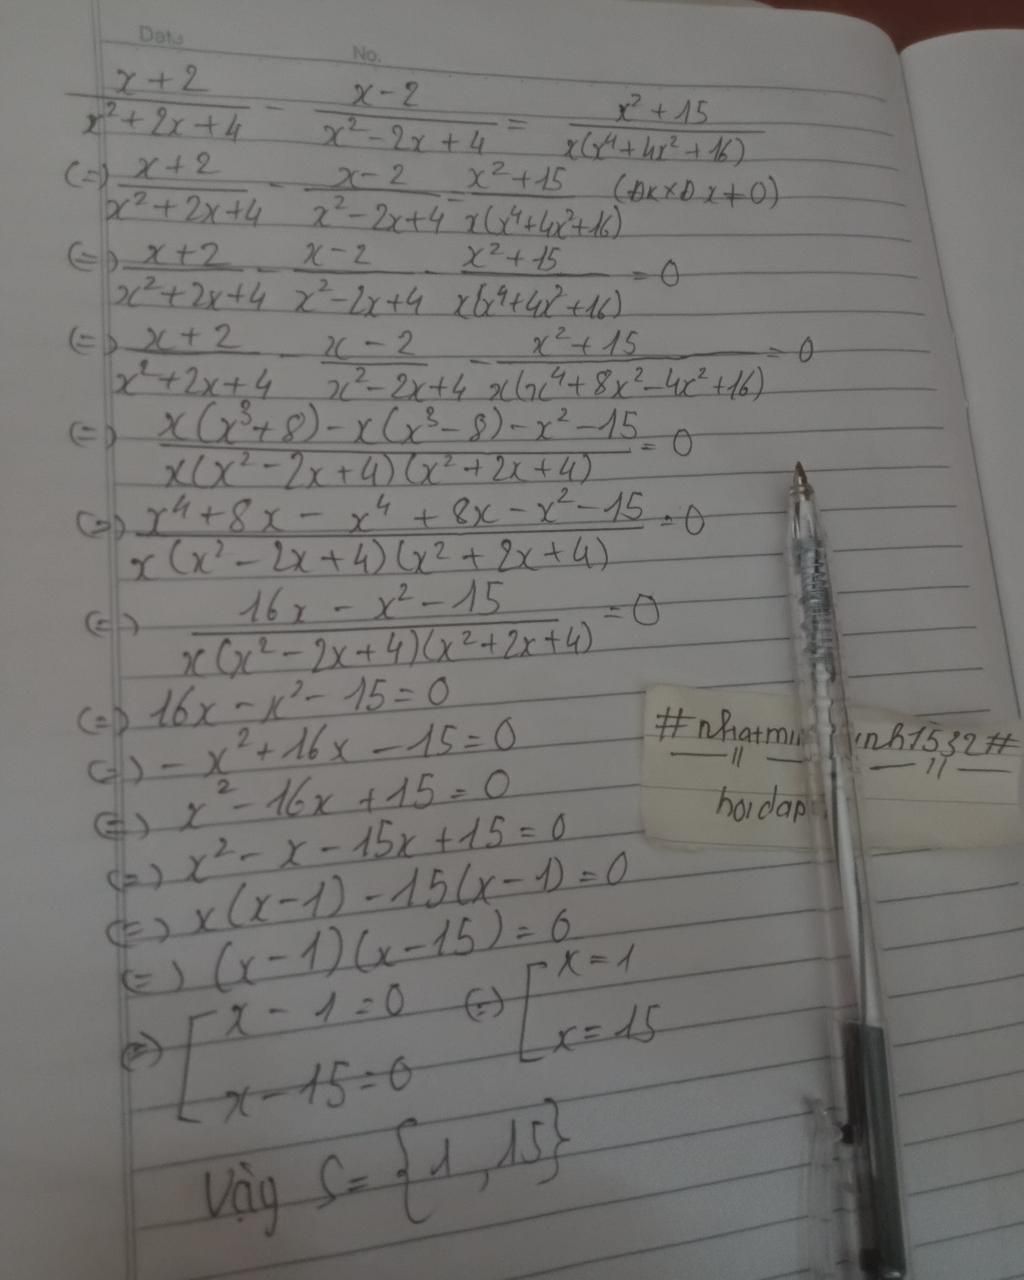 Date No.
x + 2 / x² + 2x + 4 - x - 2 / x² - 2x + 4 = x² + 15 / x(x⁴ + 4x² + 16)
(=) x + 2 / x² + 2x + 4 - x - 2 / x² - 2x + 4 = x² + 15 / x(x⁴ + 4x² + 16) (ĐKXĐ x ≠ 0)
(=) x + 2 / x² + 2x + 4 - x - 2 / x² - 2x + 4 - x² + 15 / x(x⁴ + 4x² + 16) = 0
(=) x + 2 / x² + 2x + 4 - x - 2 / x² - 2x + 4 - x² + 15 / x(x⁴ + 8x² - 4x² + 16) = 0
(=) x(x³ + 8) - x(x³ - 8) - x² - 15 / x(x² - 2x + 4)(x² + 2x + 4) = 0
(=) x⁴ + 8x - x⁴ + 8x - x² - 15 / x(x² - 2x + 4)(x² + 2x + 4) = 0
(=) 16x - x² - 15 / x(x² - 2x + 4)(x² + 2x + 4) = 0
(=) 16x - x² - 15 = 0
(=) - x² + 16x - 15 = 0
(=) x² - 16x + 15 = 0
(=) x² - x - 15x + 15 = 0
(=) x(x - 1) - 15(x - 1) = 0
(=) (x - 1)(x - 15) = 0
(=) [ x - 1 = 0 (=) [ x = 1
x - 15 = 0 x = 15
Vậy S = {1, 15}
hoidap